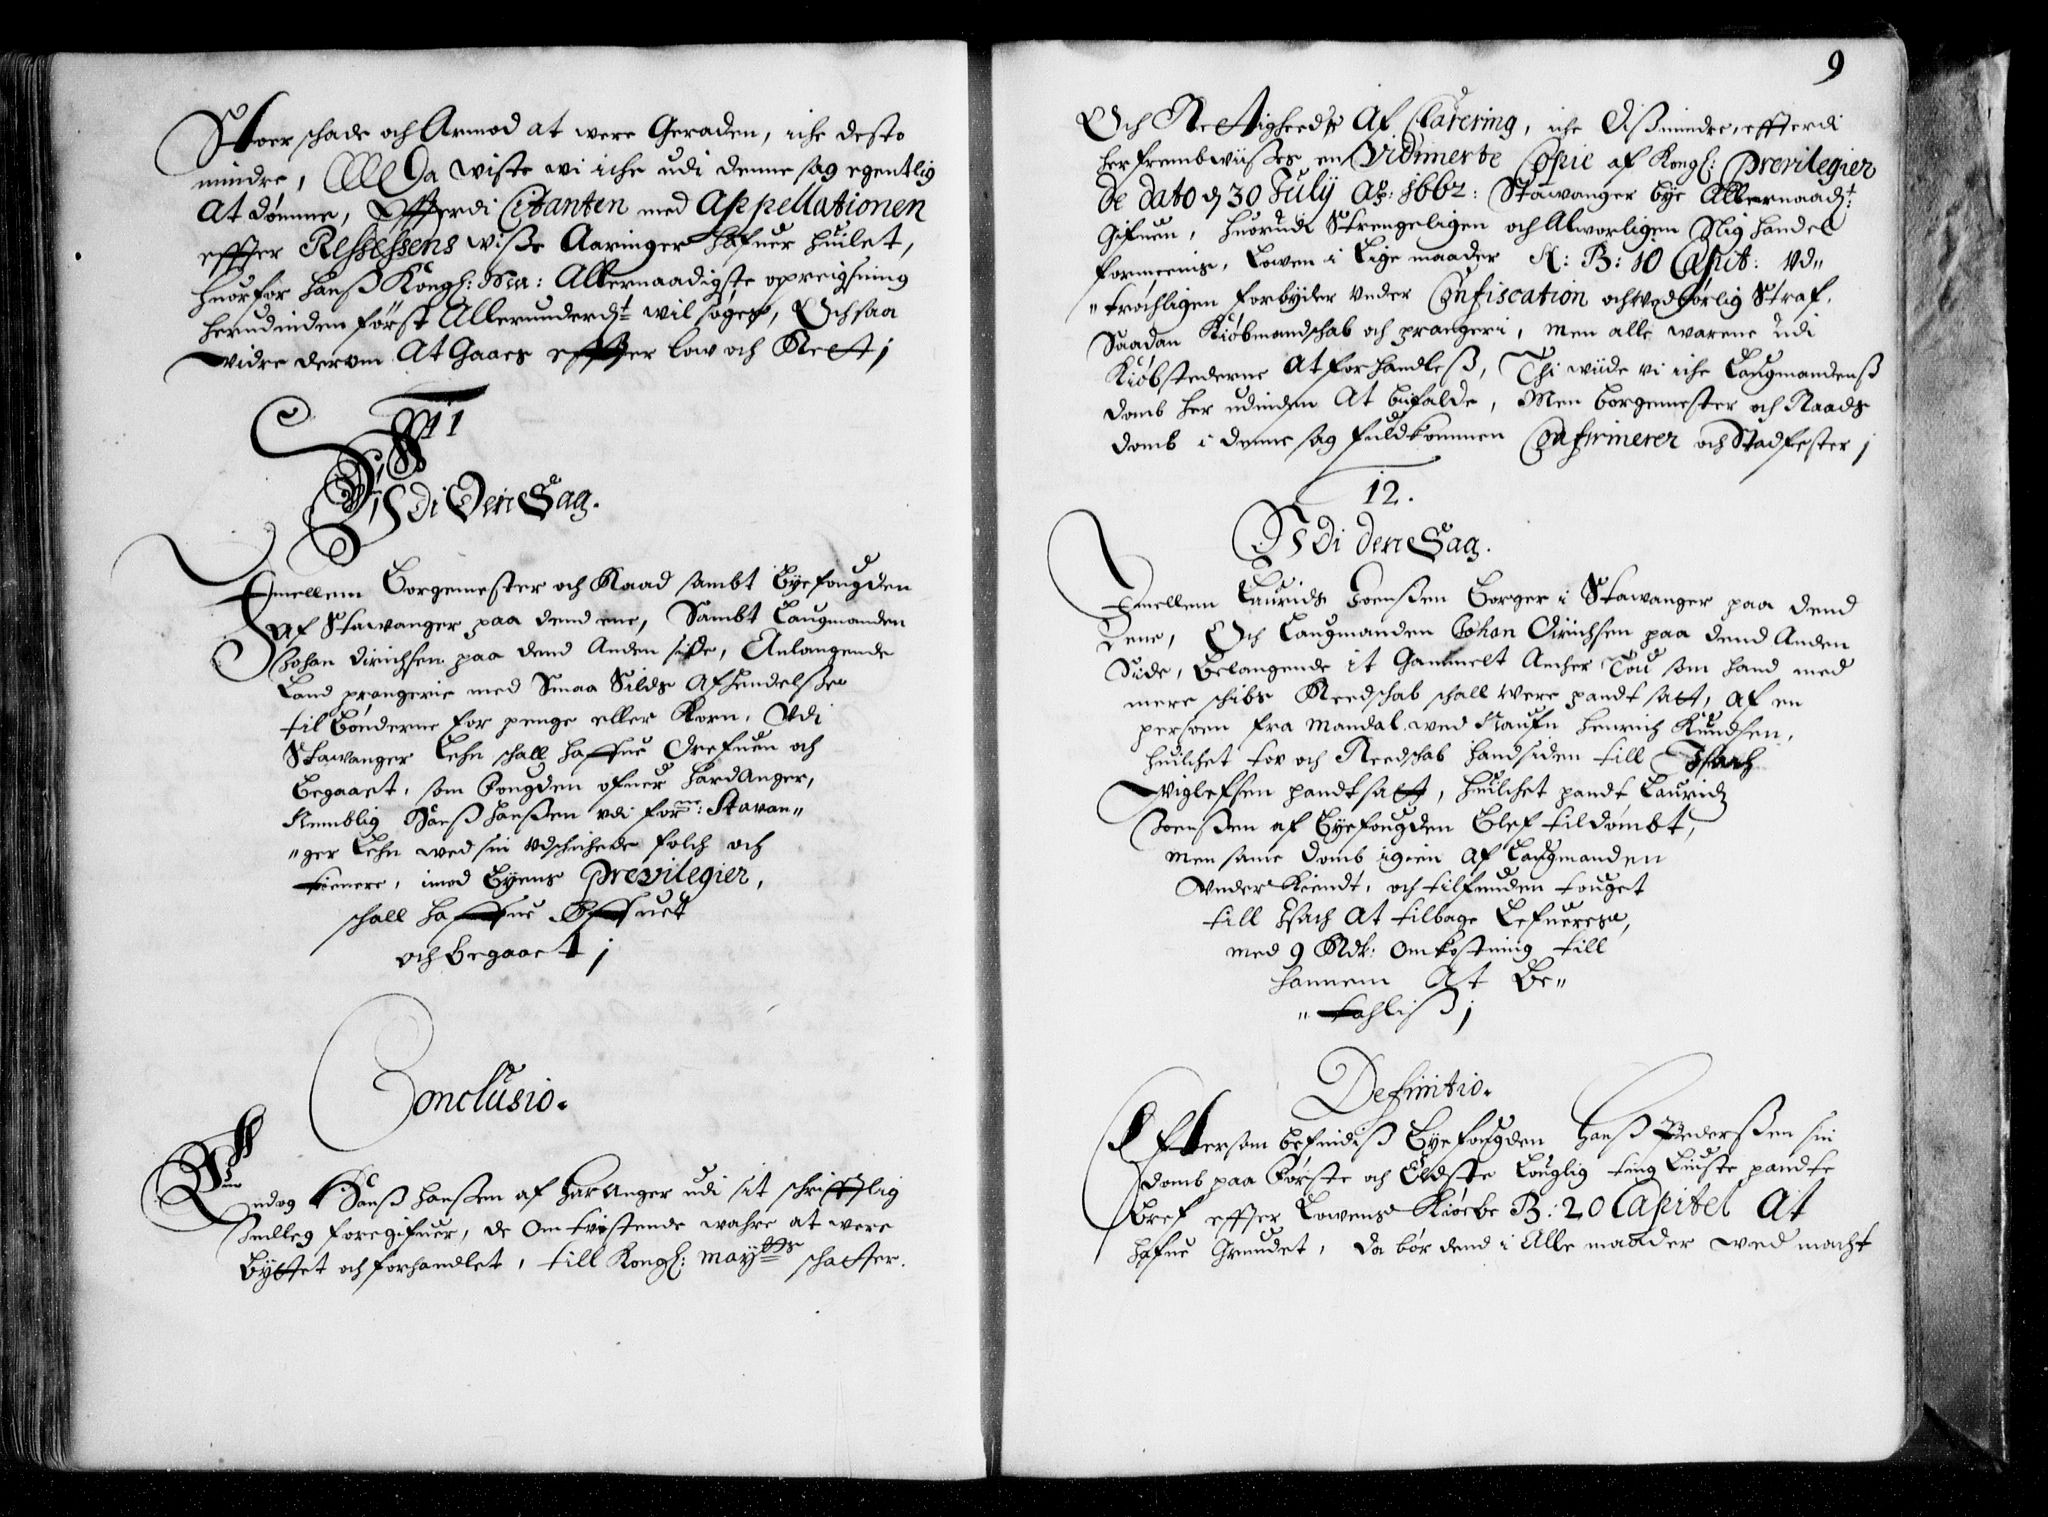 Stoer schade och Armod at were Geraden, iche desto
mindre, Da wiste wi iche udi denne sag egentlig
At dømme, Effterdi Citanten med Appellationen
effter Ressessens wisse Aaringer hafuer huilet,
huorfor hanß Kongl: Ma: Allernaadigste opreigsning
herudinden først Allerunderd.t wil søges, Och saa
widre derom At Gaaes effter low och Rett ;
11
Udi Den Sag.
Imellem Borgemester och Raad sambt Byefougden
Af Stawanger paa dend ene, Sambt Laugmanden
Johan Dirichsen paa dend Anden side, Anlangende
Land prangerie med Smaa Silds Afhendelsze
til Bønderne for penge eller Korn, Udi
Stawanger Lehn schall haffue Drefuen och
Begaaet, som fougden ofuer Hardanger,
Nemblig Hanß Hanßen udi for.ne: Stavan„
„ger Lehn wed sin udschichede folch och
tienere, imod Byens Previlegier,
schall haffue Øffuet
och begaaet ;
Conclusio.
Endog Hanß Hanßen af Haranger udi sit schrifftlig
Indleg foregifuer, de Omtvistende wahre at were
Byttet och forhandlet, till Kongl: May.tts schatter.
9
Och Rettigheeds Af Clarering, iche dißmindre, effterdi
her frembwiises en Vidimerte Copie af Kongl: Previlegier
de dato d 30 July Ao: 1662: Stawanger bye Allernaad.t
Gifuen, huorudi Strengeligen och Alworligen Slig Handel
formeenis, Lowen i Lige maader K: B: 10 Capit: Ud„
„trøchligen forbyder under Confiscation och wedbørlig Straf,
Saadan Kiøbmandschab och prangeri, Men alle warene udi
Kiøbstederne At forhandleß, Thi wiide vi iche Laugmandenß
domb her udinden At bifalde, Men borgemester och Raads
domb i denne sag fuldkommen Confirmerer och Stadfester ;
12.
Udi den Sag.
Imellem Laurids Joenßen Borger i Stawanger paa dend
Eene, Och Laugmanden Johan Dirichsen paa dend Anden
Side, Belangende it Gammelt Ancher Tou som hand med
mere schibs Reedschab schall were pandt satt, af en
persoen fra Mandal wed Naufn Henrich Knudsen,
huilchet tov och Reedschab hand siden till Isach
Wiglefsen pandtsatt, huilchet pandt Laurids
Joenßen af Byefougden Blef tildømbt,
Men same domb igien Af Laugmanden
Under Kiendt, och tilfunden touget
till Isach At tilbage Lefuerese,
med 9 Rdr: Omkostning till
hannem At Be„
„tahliß ;
Definitio.
Eftersom befindiß Byefougden Hanß Pederßen sin
domb paa Første och Eldste Louglig ting Liuste pandte
Bref effter Lowens Kiøebe B: 20 Capitel At
hafue Grundet, da bør dend i Alle maader wed macht